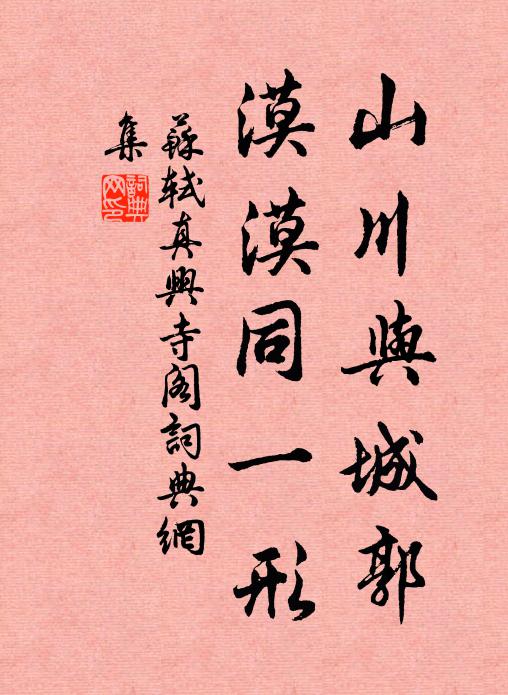 山川與城郭
漠漠同一形
蘇軾真興寺閣詞典網
集
詞典
网印